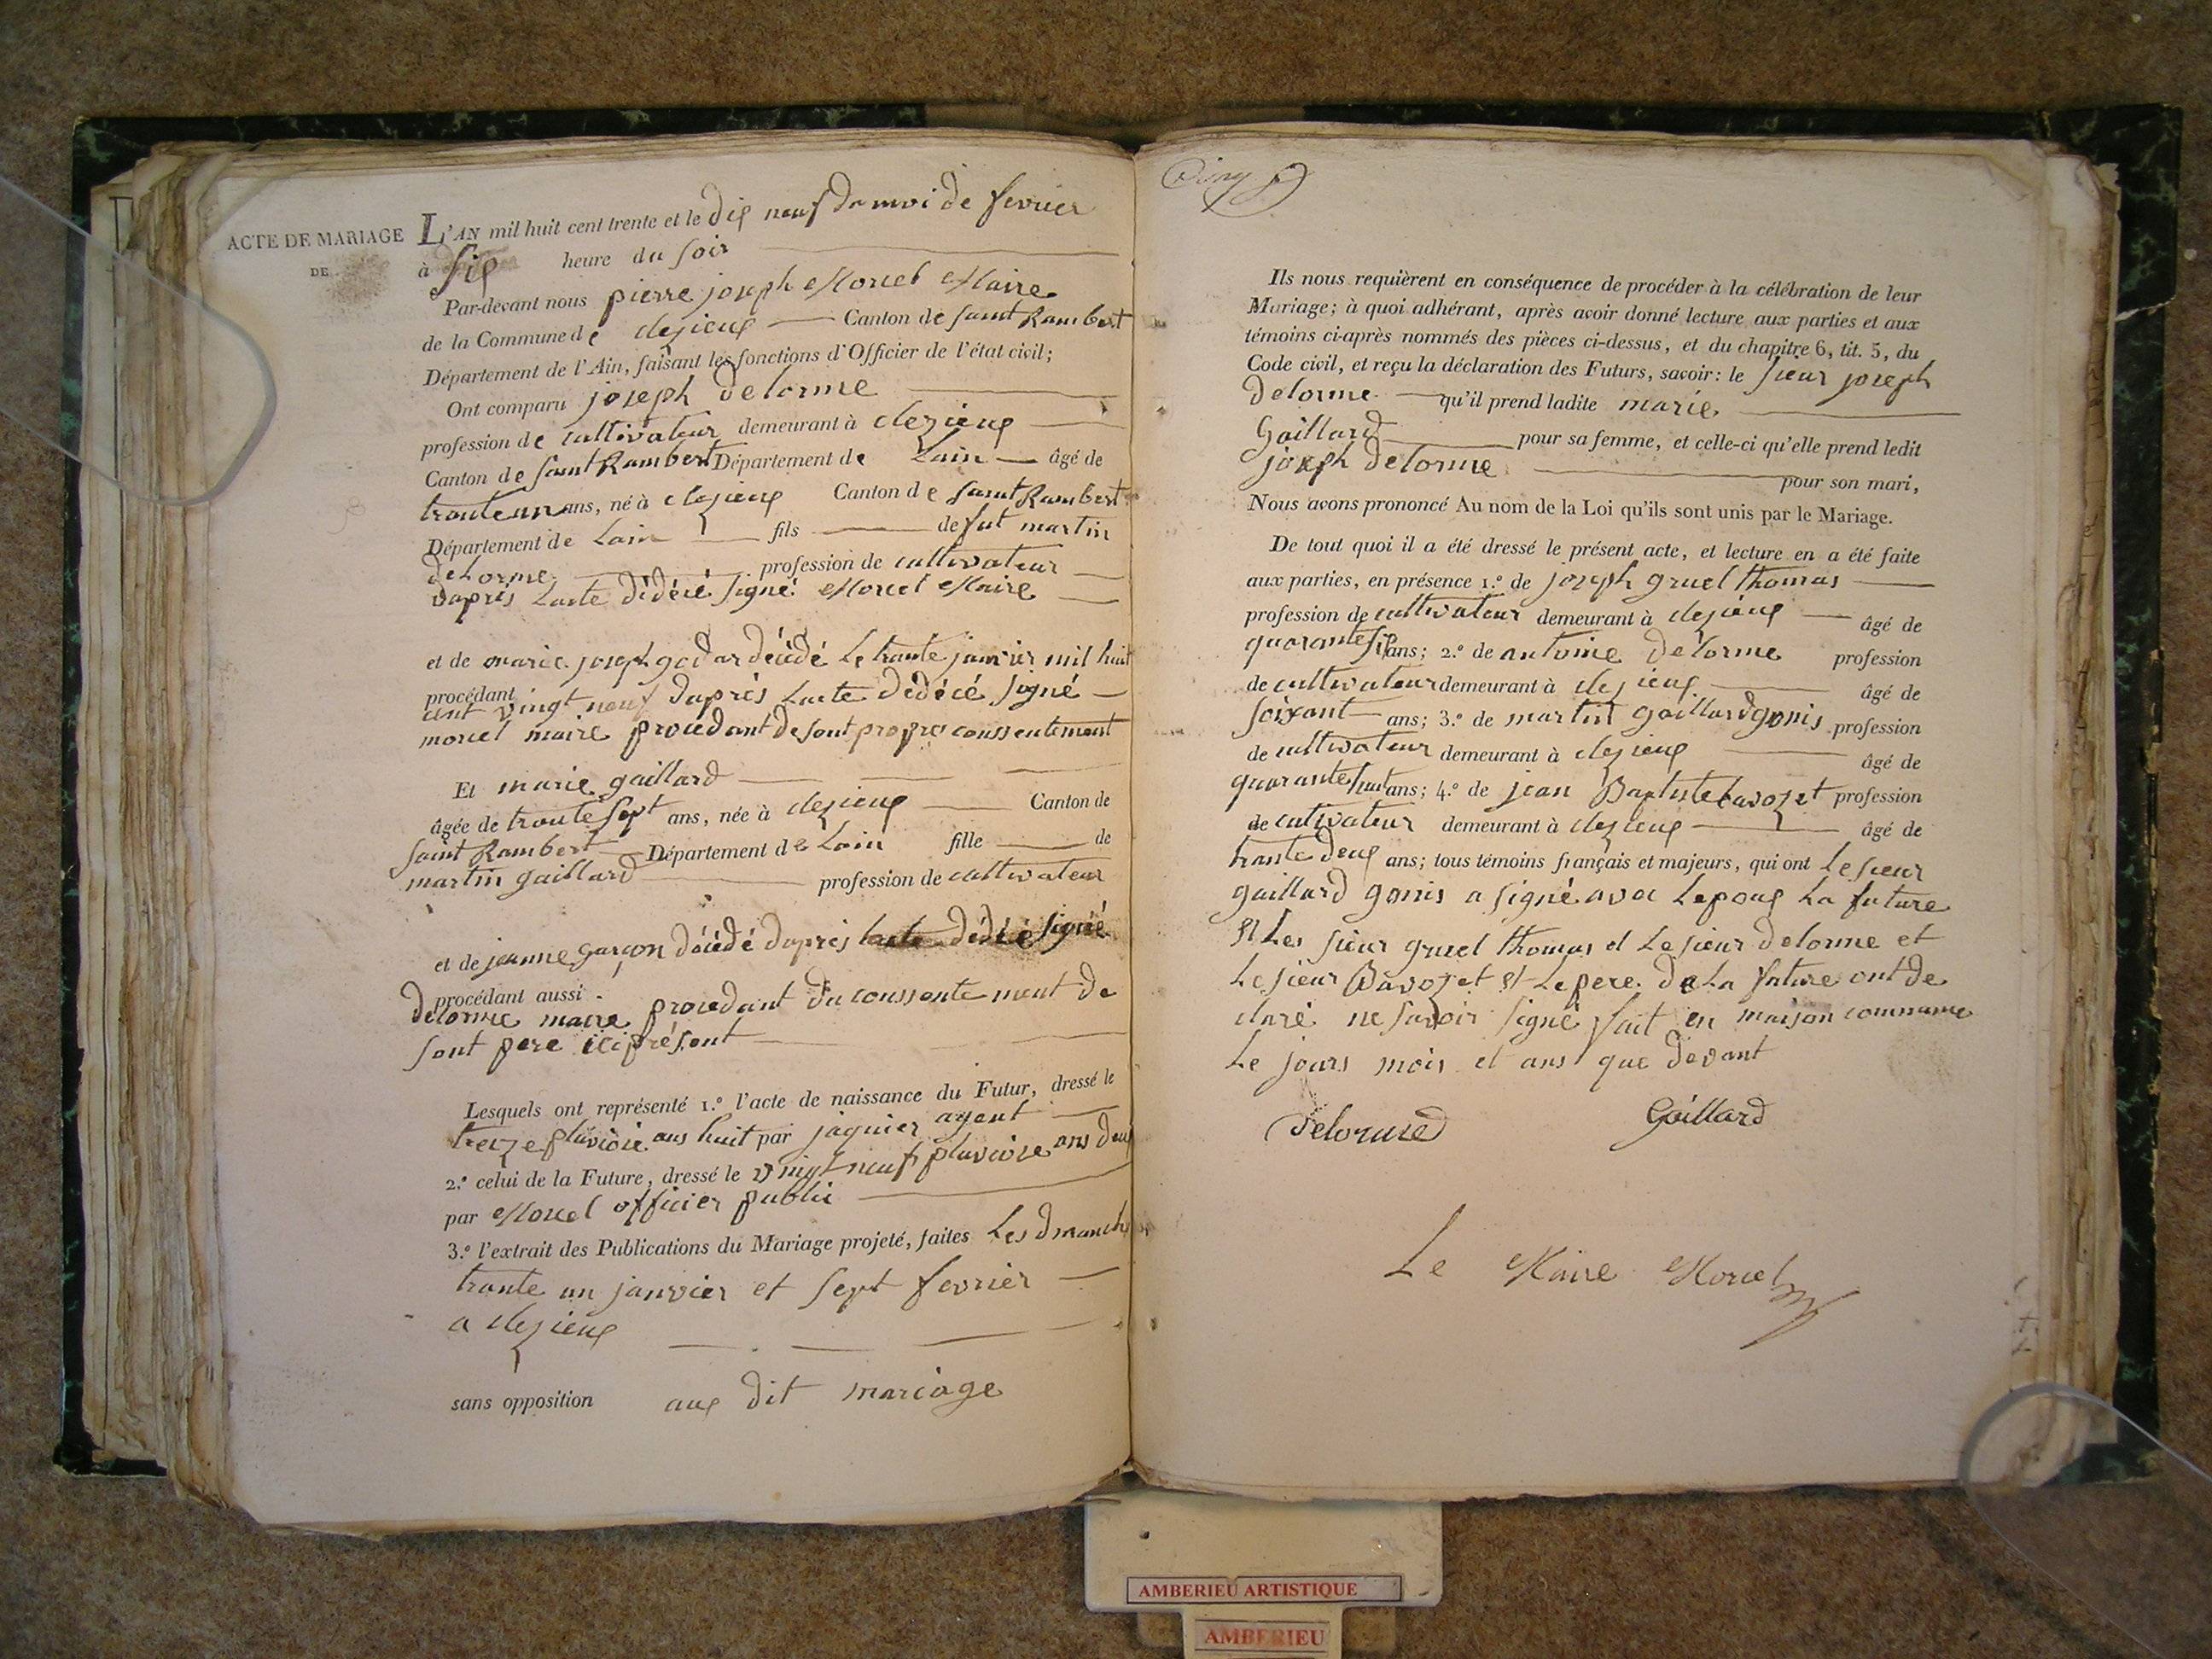 ACTE DE MARIAGE
DE
L'AN mil huit cent trente et le dix neuf du moi de fevrier
à six heure du soir
Par-devant nous pierre joseph Morcel Maire
de la Commune de clezieux Canton de saint Rambert
Département de l'Ain, faisant les fonctions d'Officier de l'état civil;
Ont comparu joseph delorme
profession de cultivateur demeurant à clezieux
Canton de saint Rambert Département de Lain âgé de
trante un ans, né à clezieux Canton de saint Rambert
Département de Lain fils de fut martin
delorme profession de cultivateur
dapris Lacte dédécé signé Morcel Maire
et de marie joseph godar décédé Le trante janvier mil huit
procédant
cent vingt neuf daprés Lacte dédécé signé
morcel maire procédant de sont propre conssentement
Et marie gaillard
âgée de trante sept ans, née à clezieux Canton de
saint Rambert Département de Lain fille de
martin gaillard profession de cultivateur
et de jeanne garçon décédé dapres lacte dédécé signé
procédant aussi
delorme maire procedant du conssentement de
sont pere ici présent
Lesquels ont représenté 1.º l'acte de naissance du Futur, dressé le
treize pluvioie ans huit par jaquier agent
2.º celui de la Future, dressé le vingt neuf pluvioise ans deux
par Morcel officier public
3.º l'extrait des Publications du Mariage projeté, faites Les dmanch
trante un janvier et sept fevrier
a clezieux
sans opposition aux dit mariage
Cinq
Ils nous requièrent en conséquence de procéder à la célébration de leur
Mariage; à quoi adhérant, après avoir donné lecture aux parties et aux
témoins ci-après nommés des pièces ci-dessus, et du chapitre 6, tit. 5, du
Code civil, et reçu la déclaration des Futurs, savoir: le sieur joseph
delorme qu'il prend ladite marie
Gaillard pour sa femme, et celle-ci qu'elle prend ledit
joseph delorme pour son mari,
Nous avons prononcé Au nom de la Loi qu'ils sont unis par le Mariage.
De tout quoi il a été dressé le présent acte, et lecture en a été faite
aux parties, en présence 1.º de joseph gruel thomas
profession de cultivateur demeurant à clezieux âgé de
quarante six ans; 2.º de antoine delorme profession
de cultivateur demeurant à clezieux âgé de
soixant ans; 3.º de martin gaillard gonis profession
de cultivateur demeurant à clezieux âgé de
quarante huit ans; 4.º de jean Baptiste bavozet profession
de cutivateur demeurant à clezieux âgé de
trante deux ans; tous témoins français et majeurs, qui ont Le sieur
gaillard gonis a signé avec Lepoux La future
et Les sieur gruel thomas et Le sieur delorme et
Le sieur Bavozet et Le pere de La future ont de
claré ne savoir signé fait en maison commune
Le jours mois et ans que devant
delorme Gaillard
Le Maire Morcel
AMBERIEU ARTISTIQUE
AMBERIEU